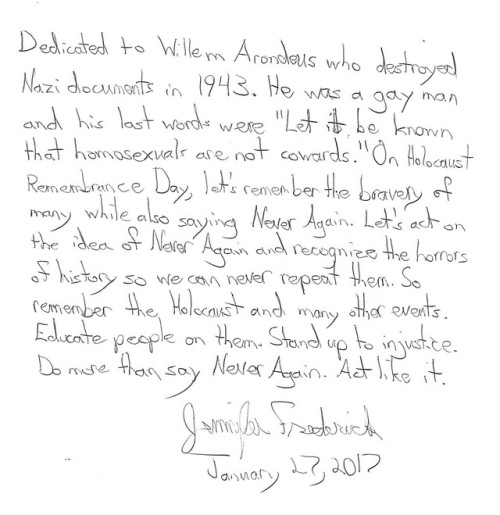 Dedicated to Willem Arondeus who destroyed
Nazi documents in 1943. He was a gay man
and his last words were "Let it be known
that homosexuals are not cowards." On Holocaust
Remembrance Day, let's remember the bravery of
many while also saying Never Again. Let's act on
the idea of Never Again and recognize the horrors
of history so we can never repeat them. So
remember the Holocaust and many other events.
Educate people on them. Stand up to injustice.
Do more than say Never Again. Act like it.
Jennifer Frederick
January 27, 2017